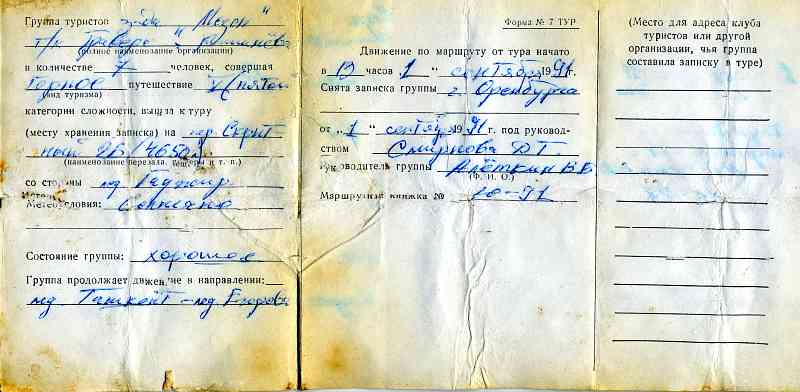 Группа туристов з-да "Мезон"
т/к
(полное наименование организации)
в количестве 7 человек, совершая
Горное путешествие V (пятой
(вид туризма)
категории сложности, вышла к туру
(месту хранения записка) на пер.
2Б (4650
(наименование перевала, пещеры и т. п.)
со стороны лд.
Метеоусловия: Солнечно
Состояние группы: хорошая
Группа продолжает движение в направлении:
лд Ташкент – лд Егорова
Форма № 7 ТУР
Движение по маршруту от тура начато
в 13 часов 1 " сентября 1991г.
Снята записка группы г. Оренбурга
от „1 " сентябр 1991 г. под руковод-
ством Смирнова Д Г
Руководитель группы Алёшкин В.Б
(Ф. И. О.)
Маршрутная книжка № 10-91
(Место для адреса клуба
туристов или другой
организации, чья группа
составила записку в туре)